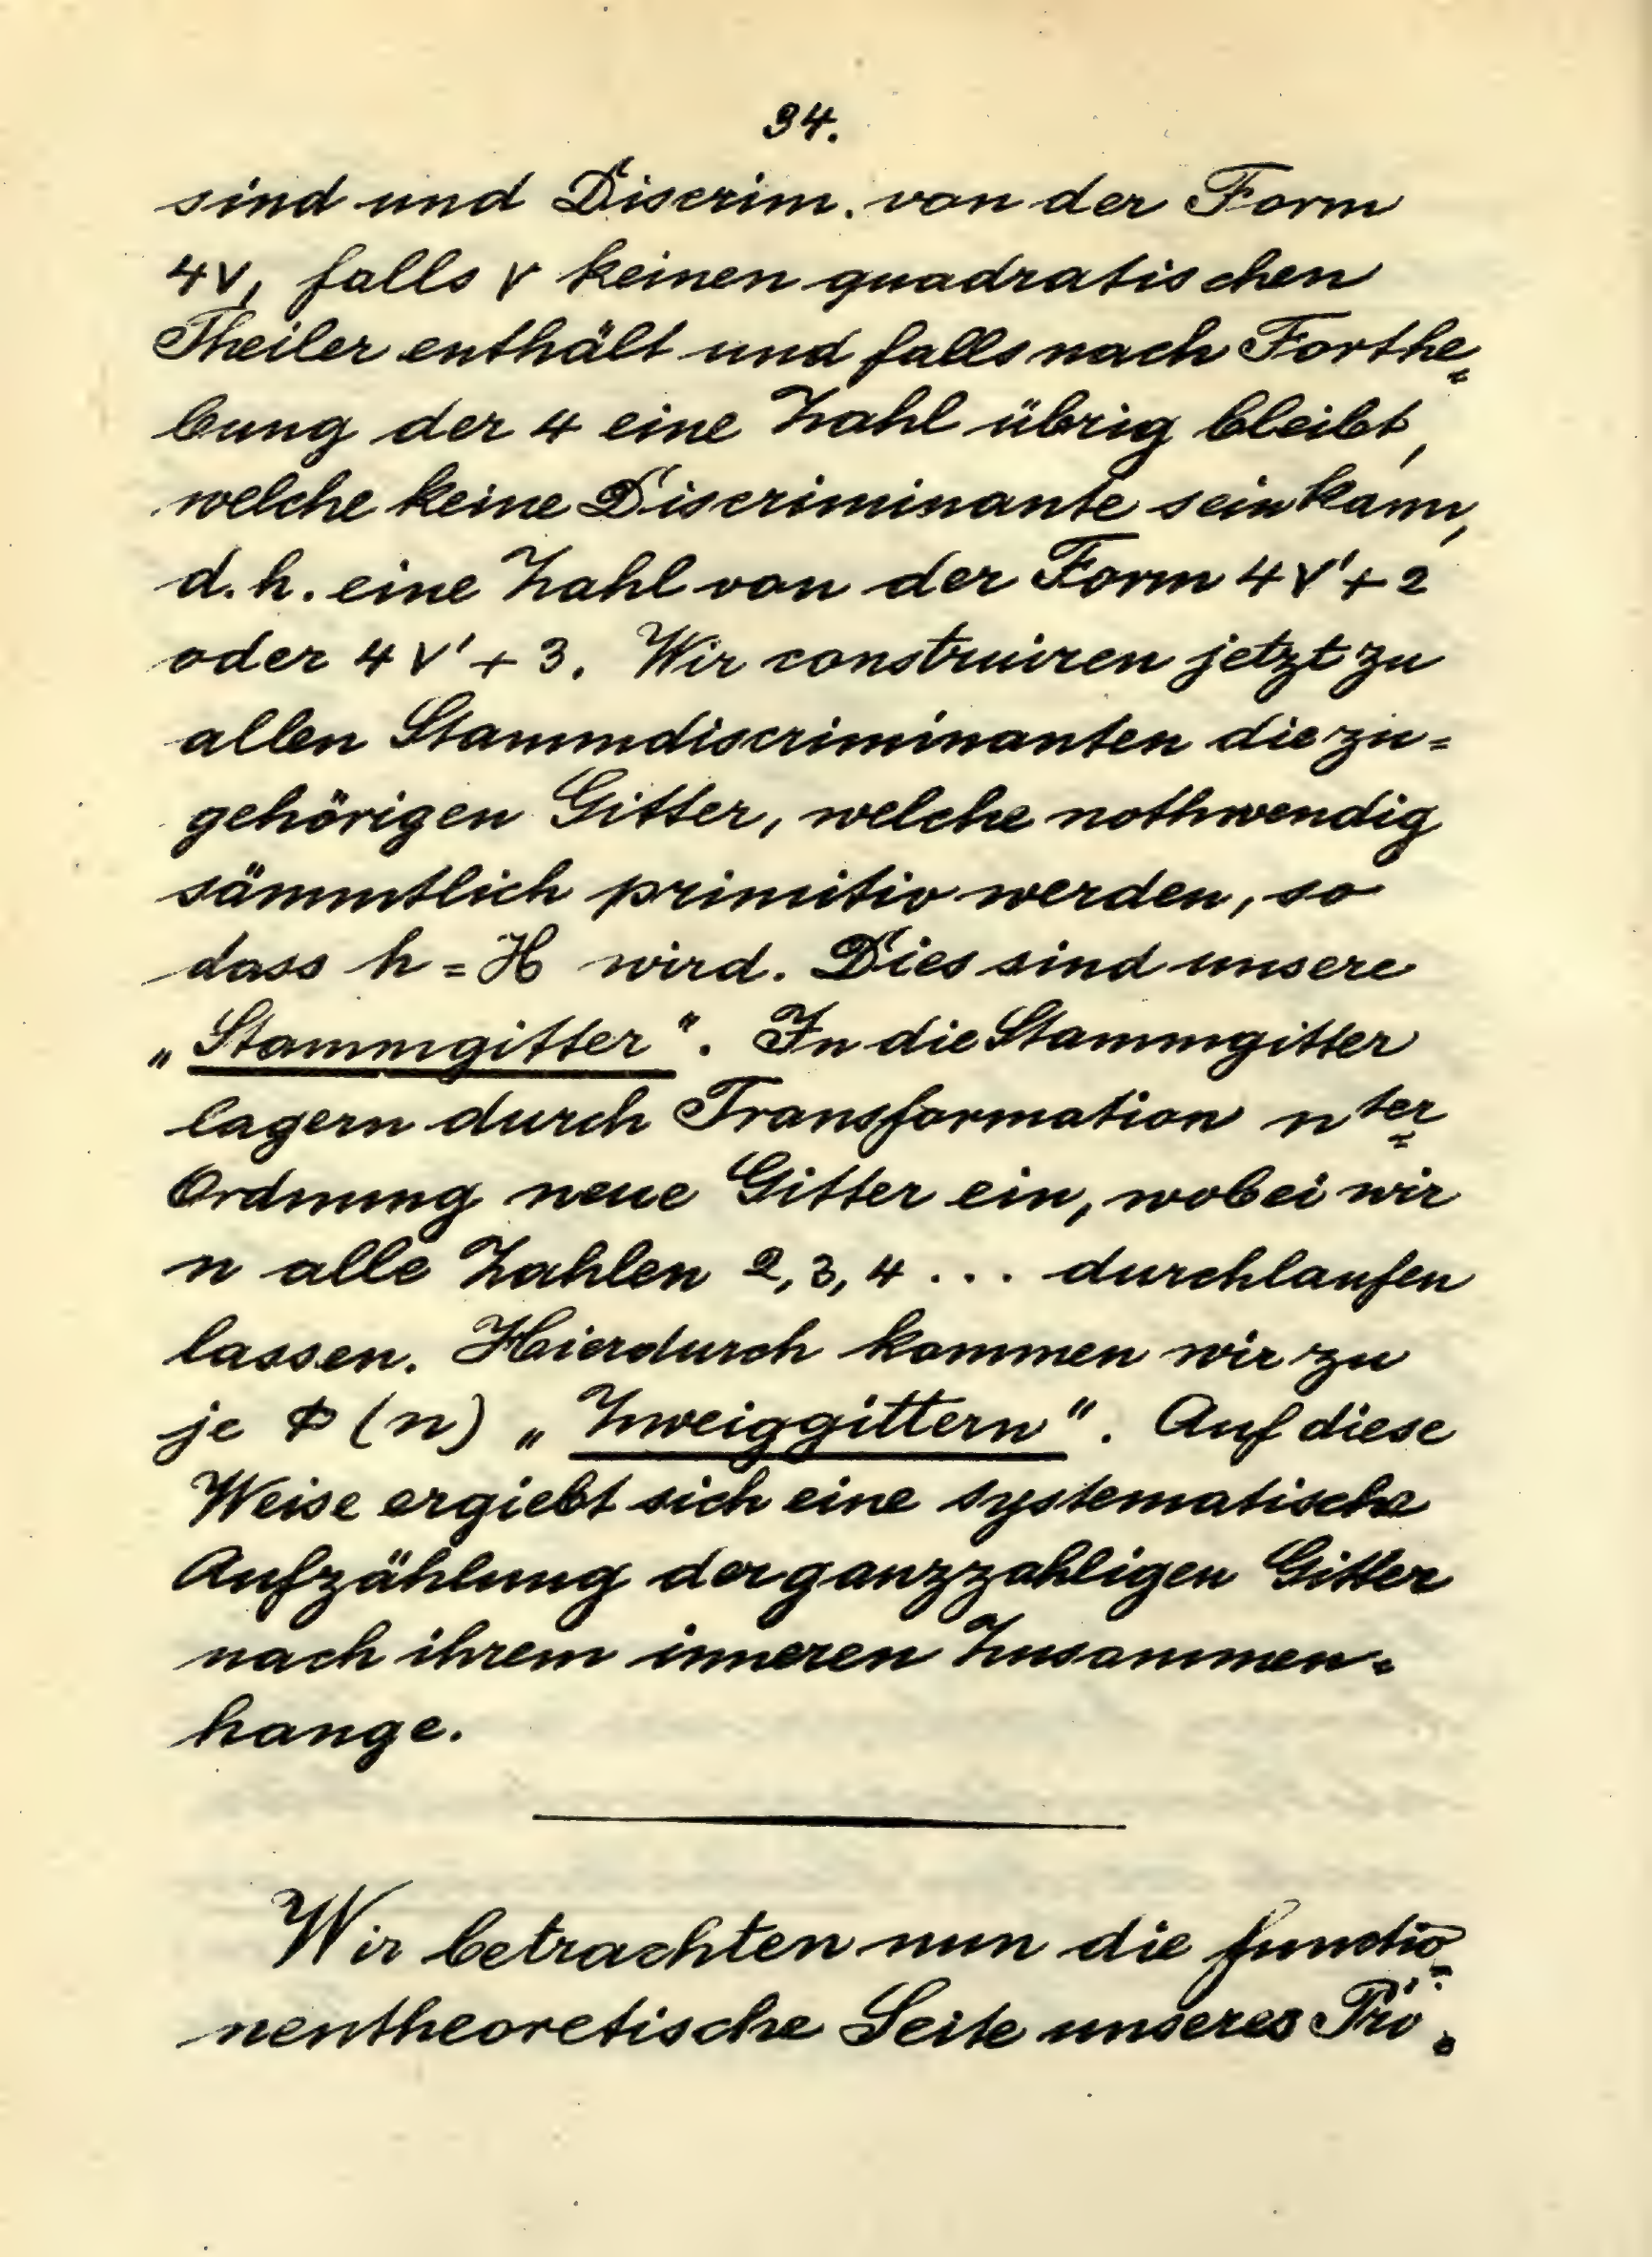 34.
sind und Discrim. von der Form
4ν, falls ν keinen quadratischen
Theiler enthält und falls nach Forthe=
bung der 4 eine Zahl übrig bleibt,
welche keine Discriminante sein kann,
d. h. eine Zahl von der Form 4ν' + 2
oder 4ν' + 3. Wir construiren jetzt zu
allen Stammdiscriminanten die zu=
gehörigen Gitter, welche nothwendig
sämmtlich primitiv werden, so
dass h = H wird. Dies sind unsere
„Stammgitter“. In die Stammgitter
lagern durch Transformation n ter=
Ordnung neue Gitter ein, wobei wir
n alle Zahlen 2, 3, 4 ... durchlaufen
lassen. Hierdurch kommen wir zu
je Φ (n) „Zweiggittern“. Auf diese
Weise ergiebt sich eine systematische
Aufzählung der ganzzahligen Gitter
nach ihrem inneren Zusammen=
hange.
Wir betrachten nun die functio=
nentheoretische Seite unseres Pro=